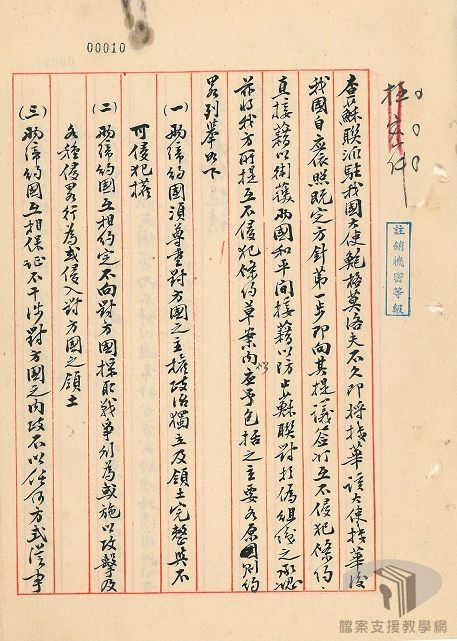 00010
註銷機密等級
查蘇聯派駐我國大使鮑格莫洛夫不久即將抵華該大使抵華後
我國自應依照既定方針第一步即向其提議簽訂互不侵犯條約
直接藉以衛護兩國和平間接藉以防止蘇聯對於偽組織之承認
茲將我方所提互不侵犯條約草案內應予包括之主要各原則約
畧列舉如下
(一) 兩締約國須尊重對方國之主權政治獨立及領土完整與不
可侵犯權
(二) 兩締約國互相約定不向對方國採取戰爭行為或施以攻擊及
各種侵畧行為或侵入對方國之領土
(三) 兩締約國互相保证不干涉對方國之內政不以任何方式從事
檔案支援教學網